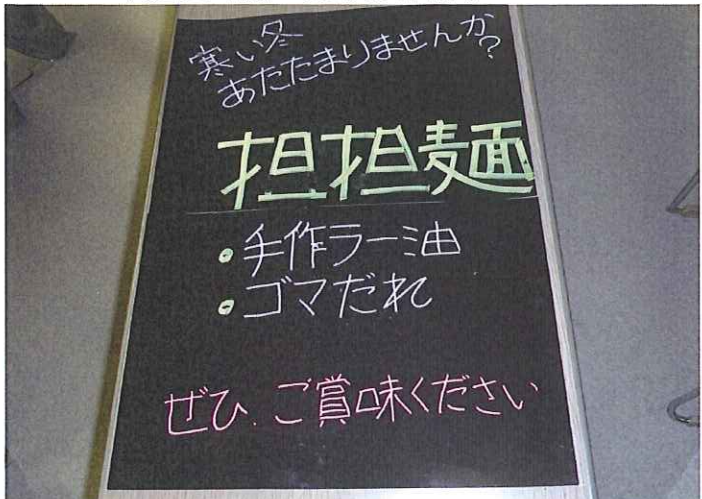 寒い冬
あたたまりませんか?
担担麺
• 手作ラー油
• ゴマだれ
ぜひ.ご賞味ください